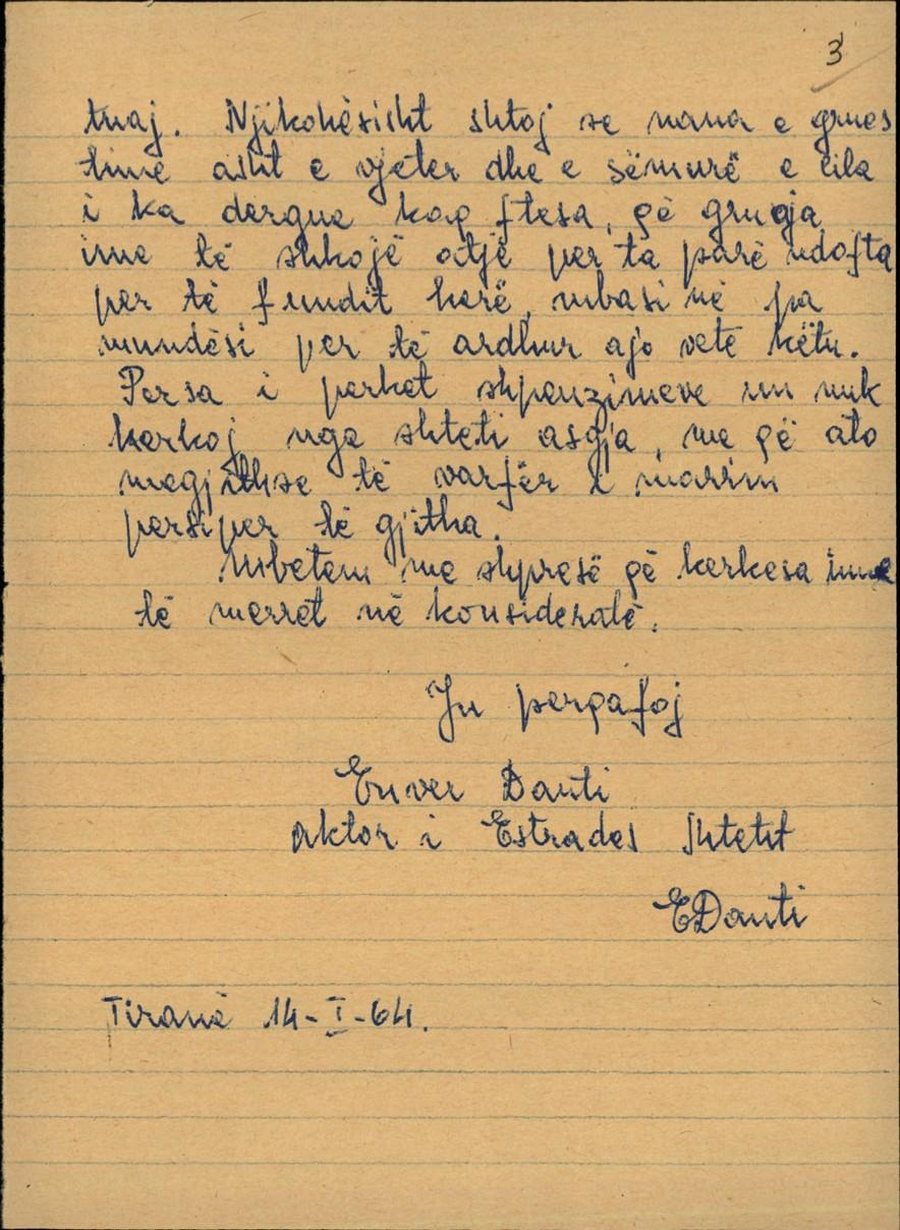 3
tuaj. Njikohësisht shtoj se nana e grues
time asht e vjetër dhe e sëmurë e cila
i ka dergue kaq ftesa, që grueja
ime të shkojë atje per ta parë ndofta
per të fundit herë, mbasi në pa
mundësi per të ardhur ajo vetë këtu.
Persa i perket shpenzimeve un nuk
kerkoj nga shteti asgja, me që ato
megjithse të varfër i marrim
persiper të gjitha.
Mbetem me shpresë që kerkesa ime
të merret në konsideratë.
Ju perqafoj
Enver Dauti
Aktor i Estrades Shtetit
EDauti
Tiranë 14-I-64.